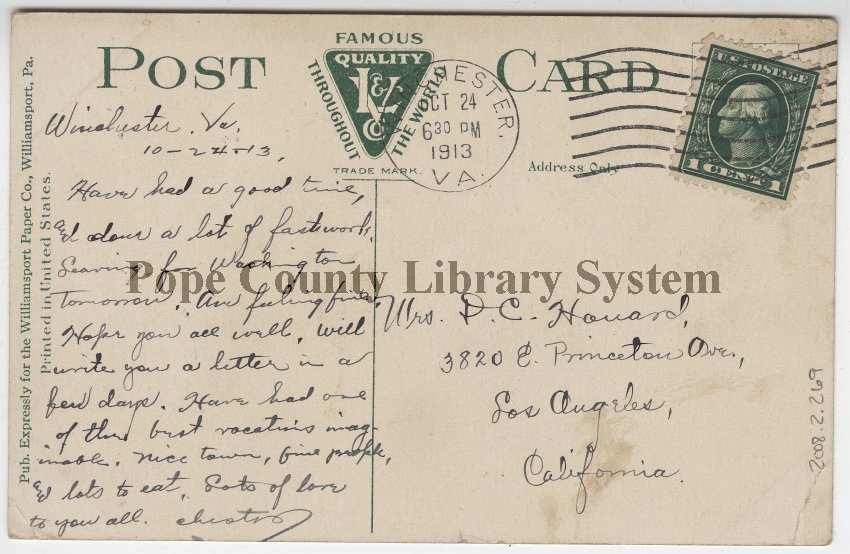 POST CARD
FAMOUS
QUALITY
K&C
Co
THROUGHOUT
THE WORLD
TRADE MARK
WINCHESTER.
OCT 24
630 PM
1913
VA.
U.S. POSTAGE
1 CENT 1
Address Only
Pub. Expressly for the Williamsport Paper Co., Williamsport, Pa.
Printed in United States.
Winchester, Va.
10-24-13,
Have had a good time,
and done a lot of fast work.
Leaving for Washington
tomorrow. Am feeling fine.
Hope you all well. Will
write you a letter in a
few days. Have had one
of the best vacations imag-
inable. Nice town, fine people,
and lots to eat. Lots of love
to you all. Chester
Mrs. D. C. Howard,
3820 E. Princeton Ave.,
Los Angeles,
California.
Pope County Library System
2008.2.269